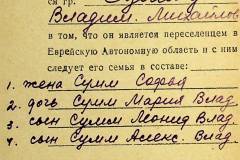 ся гр.
Владим. Михайлов
в том, что он является переселенцем в
Еврейскую Автономную область и с ним
следует его семья в составе:
1. жена Сумм Софья
2. дочь Сумм Мария Влад.
3. сын Сумм Леонид Влад.
4. сын Сумм Алекс. Влад.